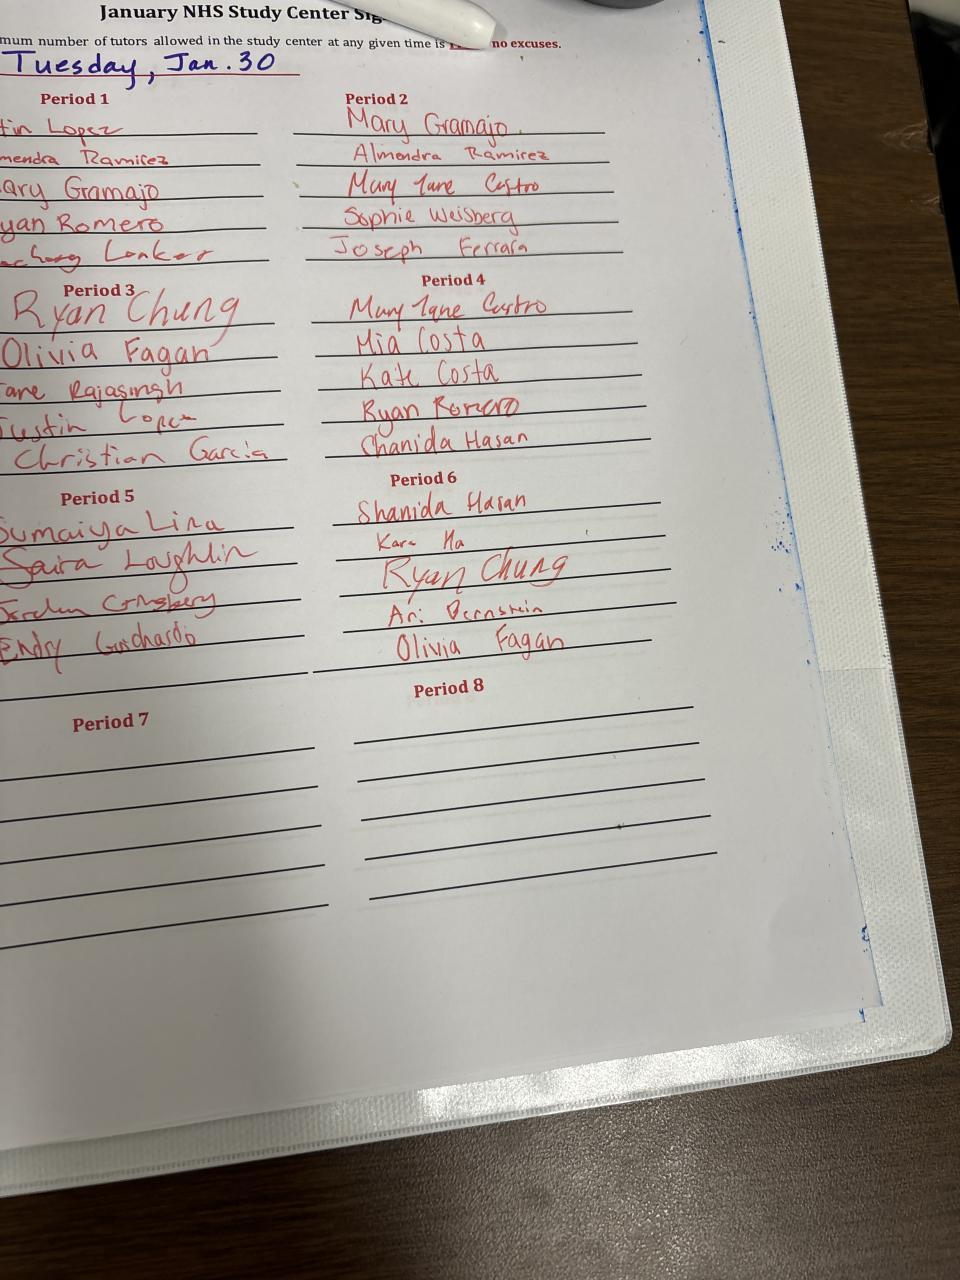 January NHS Study Center Sig
mum number of tutors allowed in the study center at any given time is no excuses.
Tuesday, Jan. 30
Period 1
tin Lopez
mendra Ramirez
ary Gramajo
yan Romero
Lonker
Period 2
Mary Gramajo
Almendra Ramirez
Mary Jane Castro
Sophie Weisberg
Joseph Ferrara
Period 3
Ryan Chung
Olivia Fagan
ane Rajasingh
Justin Lopez
Christian Garcia
Period 4
Mary Jane Castro
Mia Costa
Kate Costa
Ryan Romero
Shanida Hasan
Period 5
Sumaiya Lira
Saira Loughlin
Endry
Period 6
Shanida Hasan
Kara Ha
Ryan Chung
Ari Bernstein
Olivia Fagan
Period 7
Period 8